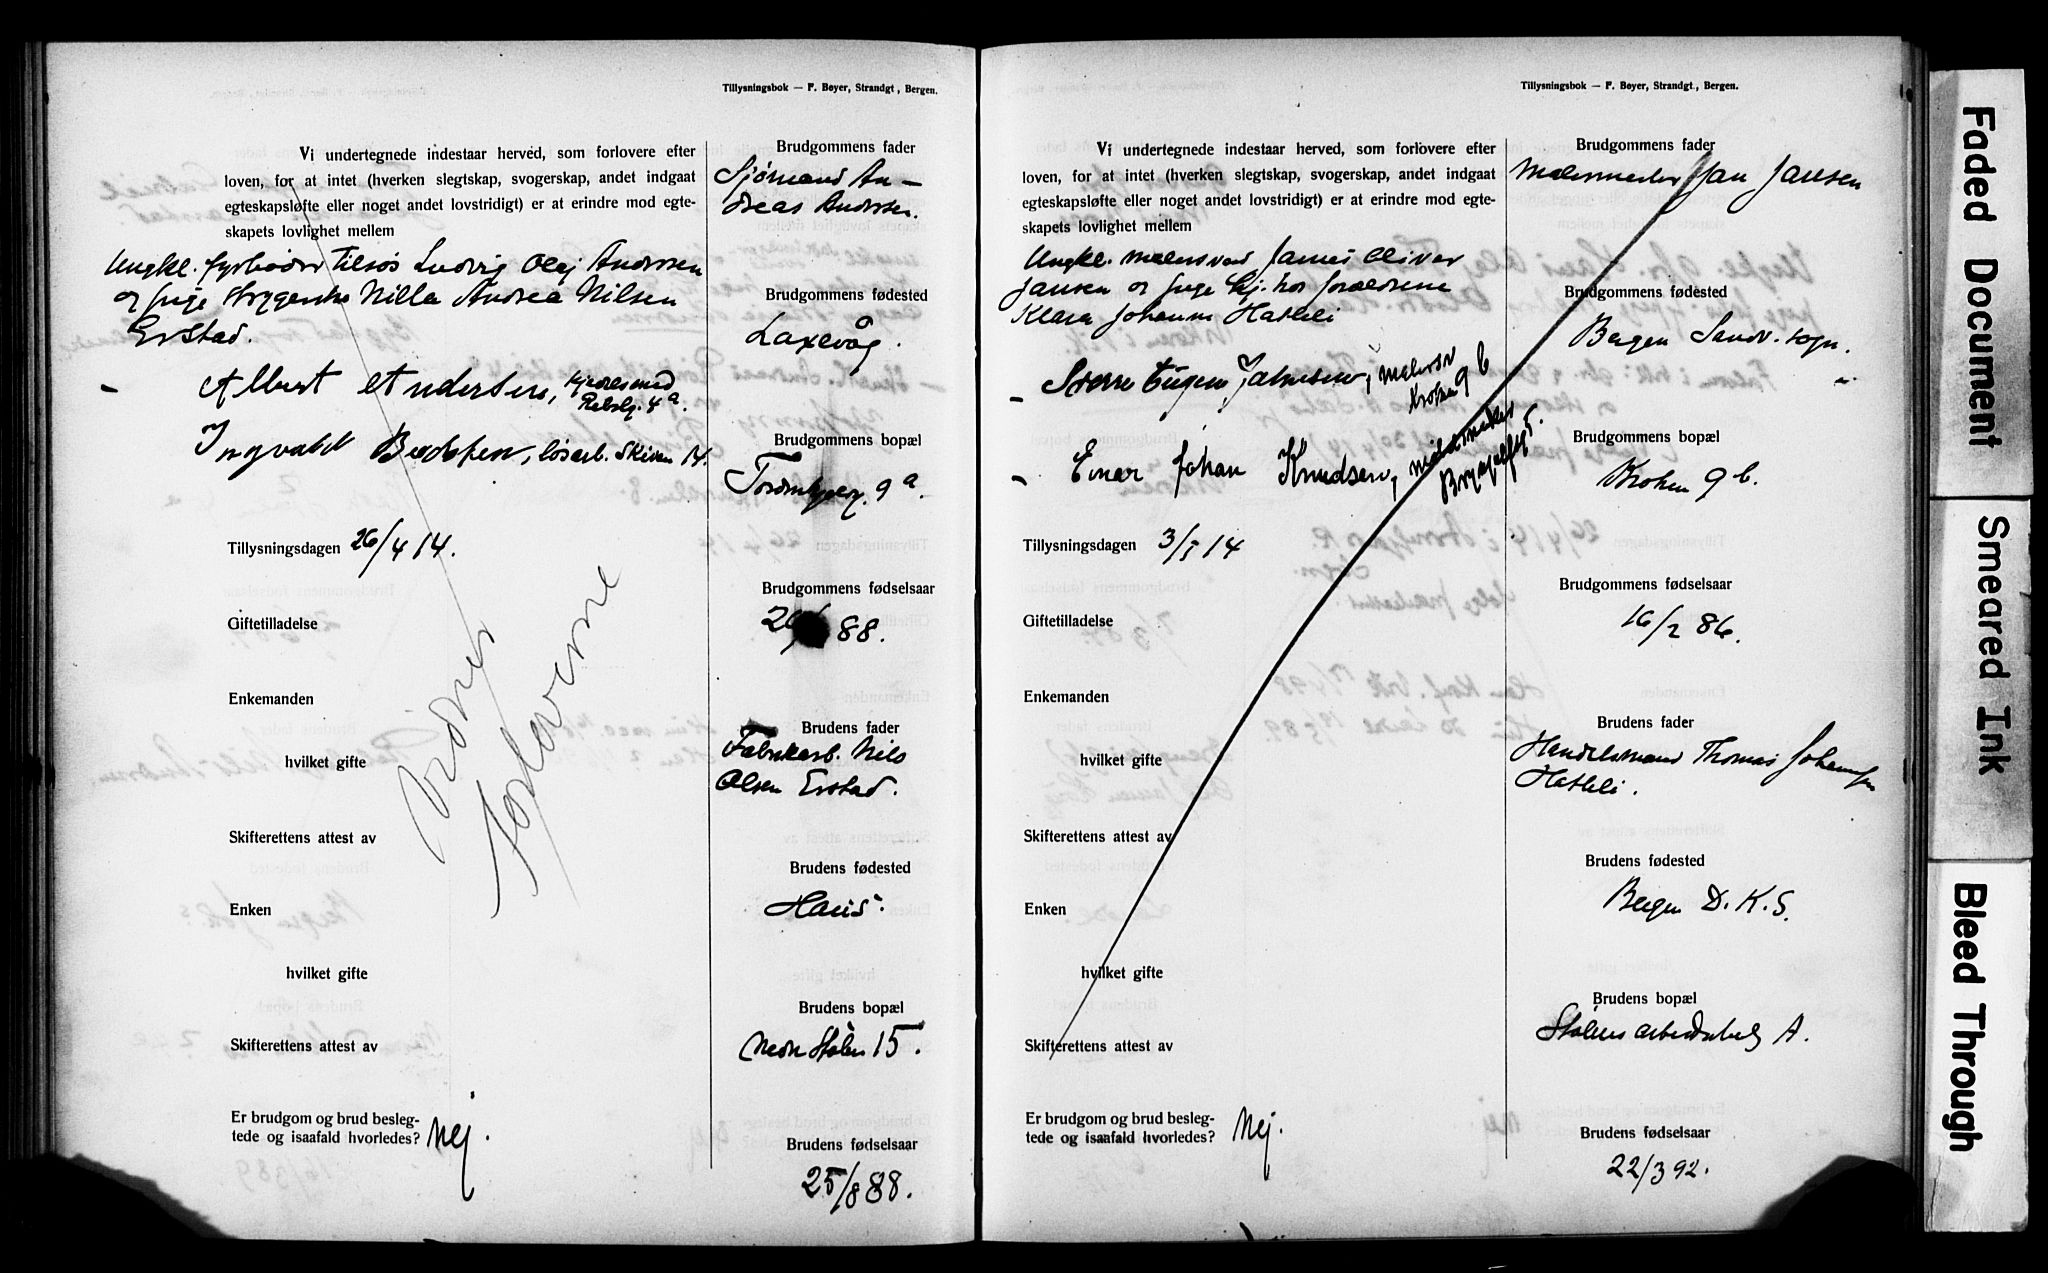 Tillysningsbok — F. Beyer, Strandgt, Bergen.
Vi undertegnede indestaar herved, som forlovere efter
loven, for at intet (hverken slegtskap, svogerskap, andet indgaat
egteskapsløfte eller noget andet lovstridigt) er at erindre mod egte-
skapets lovlighet mellem
Ungkl. fyrbøder til sjøs Ludvig Olaj Andersen
og pige Nilla Andrea Nilsen
Erstad.
Albert Andersen,
4 a.
Ingvald løsarb. Skiven 14.
Tillysningsdagen 26/4 14.
Giftetilladelse
Enkemanden
hvilket gifte
Skifterettens attest av
Enken
hvilket gifte
Skifterettens attest av
Er brudgom og brud besleg-
tede og isaafald hvorledes? Nej.
Forloverne
Brudgommens fader
Sjømand An-
dreas Andersen.
Brudgommens fødested
Laxevåg.
Brudgommens bopæl
9 a.
Brudgommens fødselsaar
88.
Brudens fader
Fabrikarb. Nils
Olsen Erstad.
Brudens fødested
Haus.
Brudens bopæl
Nedre Stølen 15.
Brudens fødselsaar
25/8 88.
Tillysningsbok — F. Beyer, Strandgt., Bergen.
Vi undertegnede indestaar herved, som forlovere efter
loven, for at intet (hverken slegtskap, svogerskap, andet indgaat
egteskapsløfte eller noget andet lovstridigt) er at erindre mod egte-
skapets lovlighet mellem
Ungkl. malersvend James Oliver
Jansen og pige hj. hos forældrene
Klara Johanne Hatleli
Sverre Eugen malersv
Kroken 9 b
Einar Johan Knudsen,
Tillysningsdagen 3/5 14
Giftetilladelse
Enkemanden
hvilket gifte
Skifterettens attest av
Enken
hvilket gifte
Skifterettens attest av
Er brudgom og brud besleg-
tede og isaafald hvorledes? Nej.
Brudgommens fader
Malermester Jan Jansen
Brudgommens fødested
Bergen Sandv. sogn.
Brudgommens bopæl
Kroken 9 b.
Brudgommens fødselsaar
16/2 86.
Brudens fader
Handelsmand Thomas Johannesen
Hatleli.
Brudens fødested
Bergen D. K. S.
Brudens bopæl
Stølens arbeiderbolig A.
Brudens fødselsaar
22/3 92.
Faded Document
Smeared Ink
Bleed Through